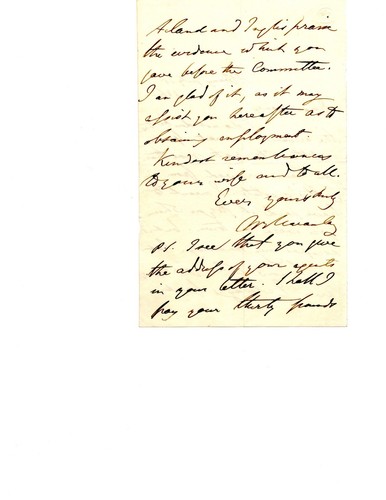 Acland and Inglis praise
the evidence which you
gave before the Committee.
I am glad of it, as it may
assist you hereafter as to
obtaining employment.
Kindest remembrances
to your wife and to all.
Ever yours truly
PS. I see that you give
the address of your agents
in your letter. Shall I
pay your thirty pounds